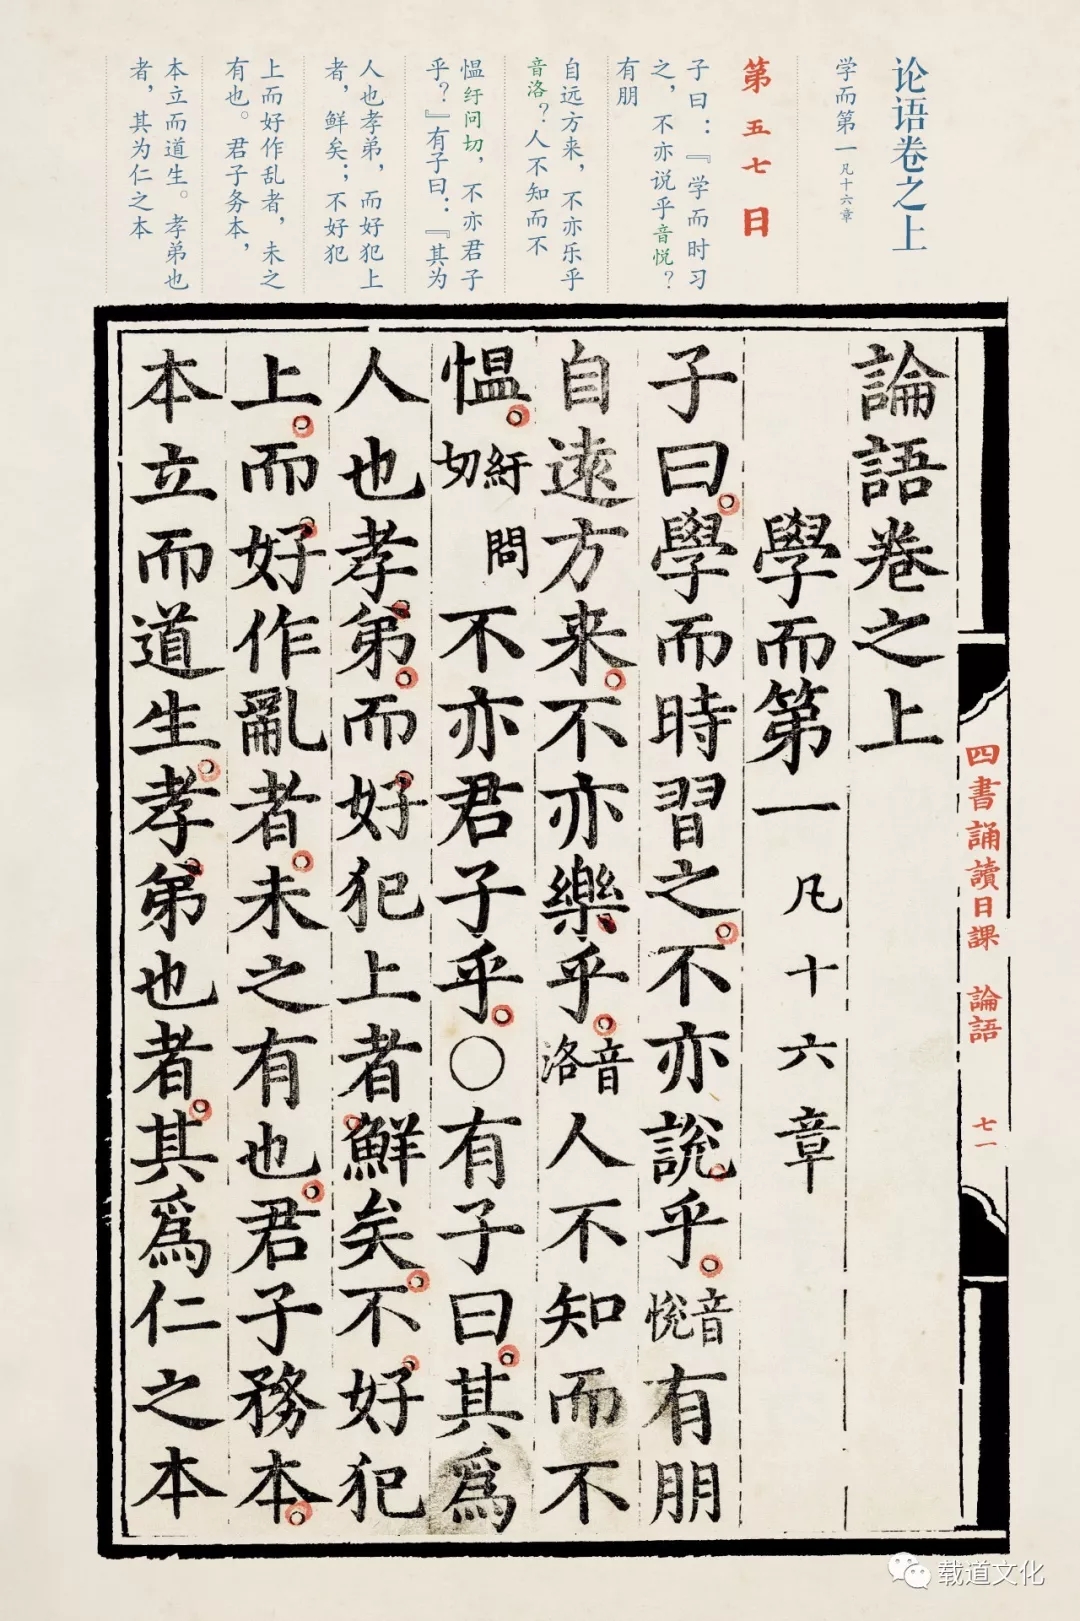 论语卷之上
学而第一 凡十六章
第五七日
子曰：『学而时习
之，不亦说乎音悦？
有朋
自远方来，不亦乐乎
音洛？人不知而不
愠纡问切，不亦君子
乎？』有子曰：『其为
人也孝弟，而好犯上
者，鲜矣；不好犯
上而好作乱者，未之
有也。君子务本，
本立而道生。孝弟也
者，其为仁之本
論語卷之上
學而第一 凡十六章
子曰學而時習之不亦說乎音悅有朋
自遠方来不亦樂乎音洛人不知而不
愠紆問切不亦君子乎○有子曰其爲
人也孝弟而好犯上者鮮矣不好犯
上而好作亂者未之有也君子務本
本立而道生孝弟也者其爲仁之本
四書誦讀日課 論語 七一
载道文化